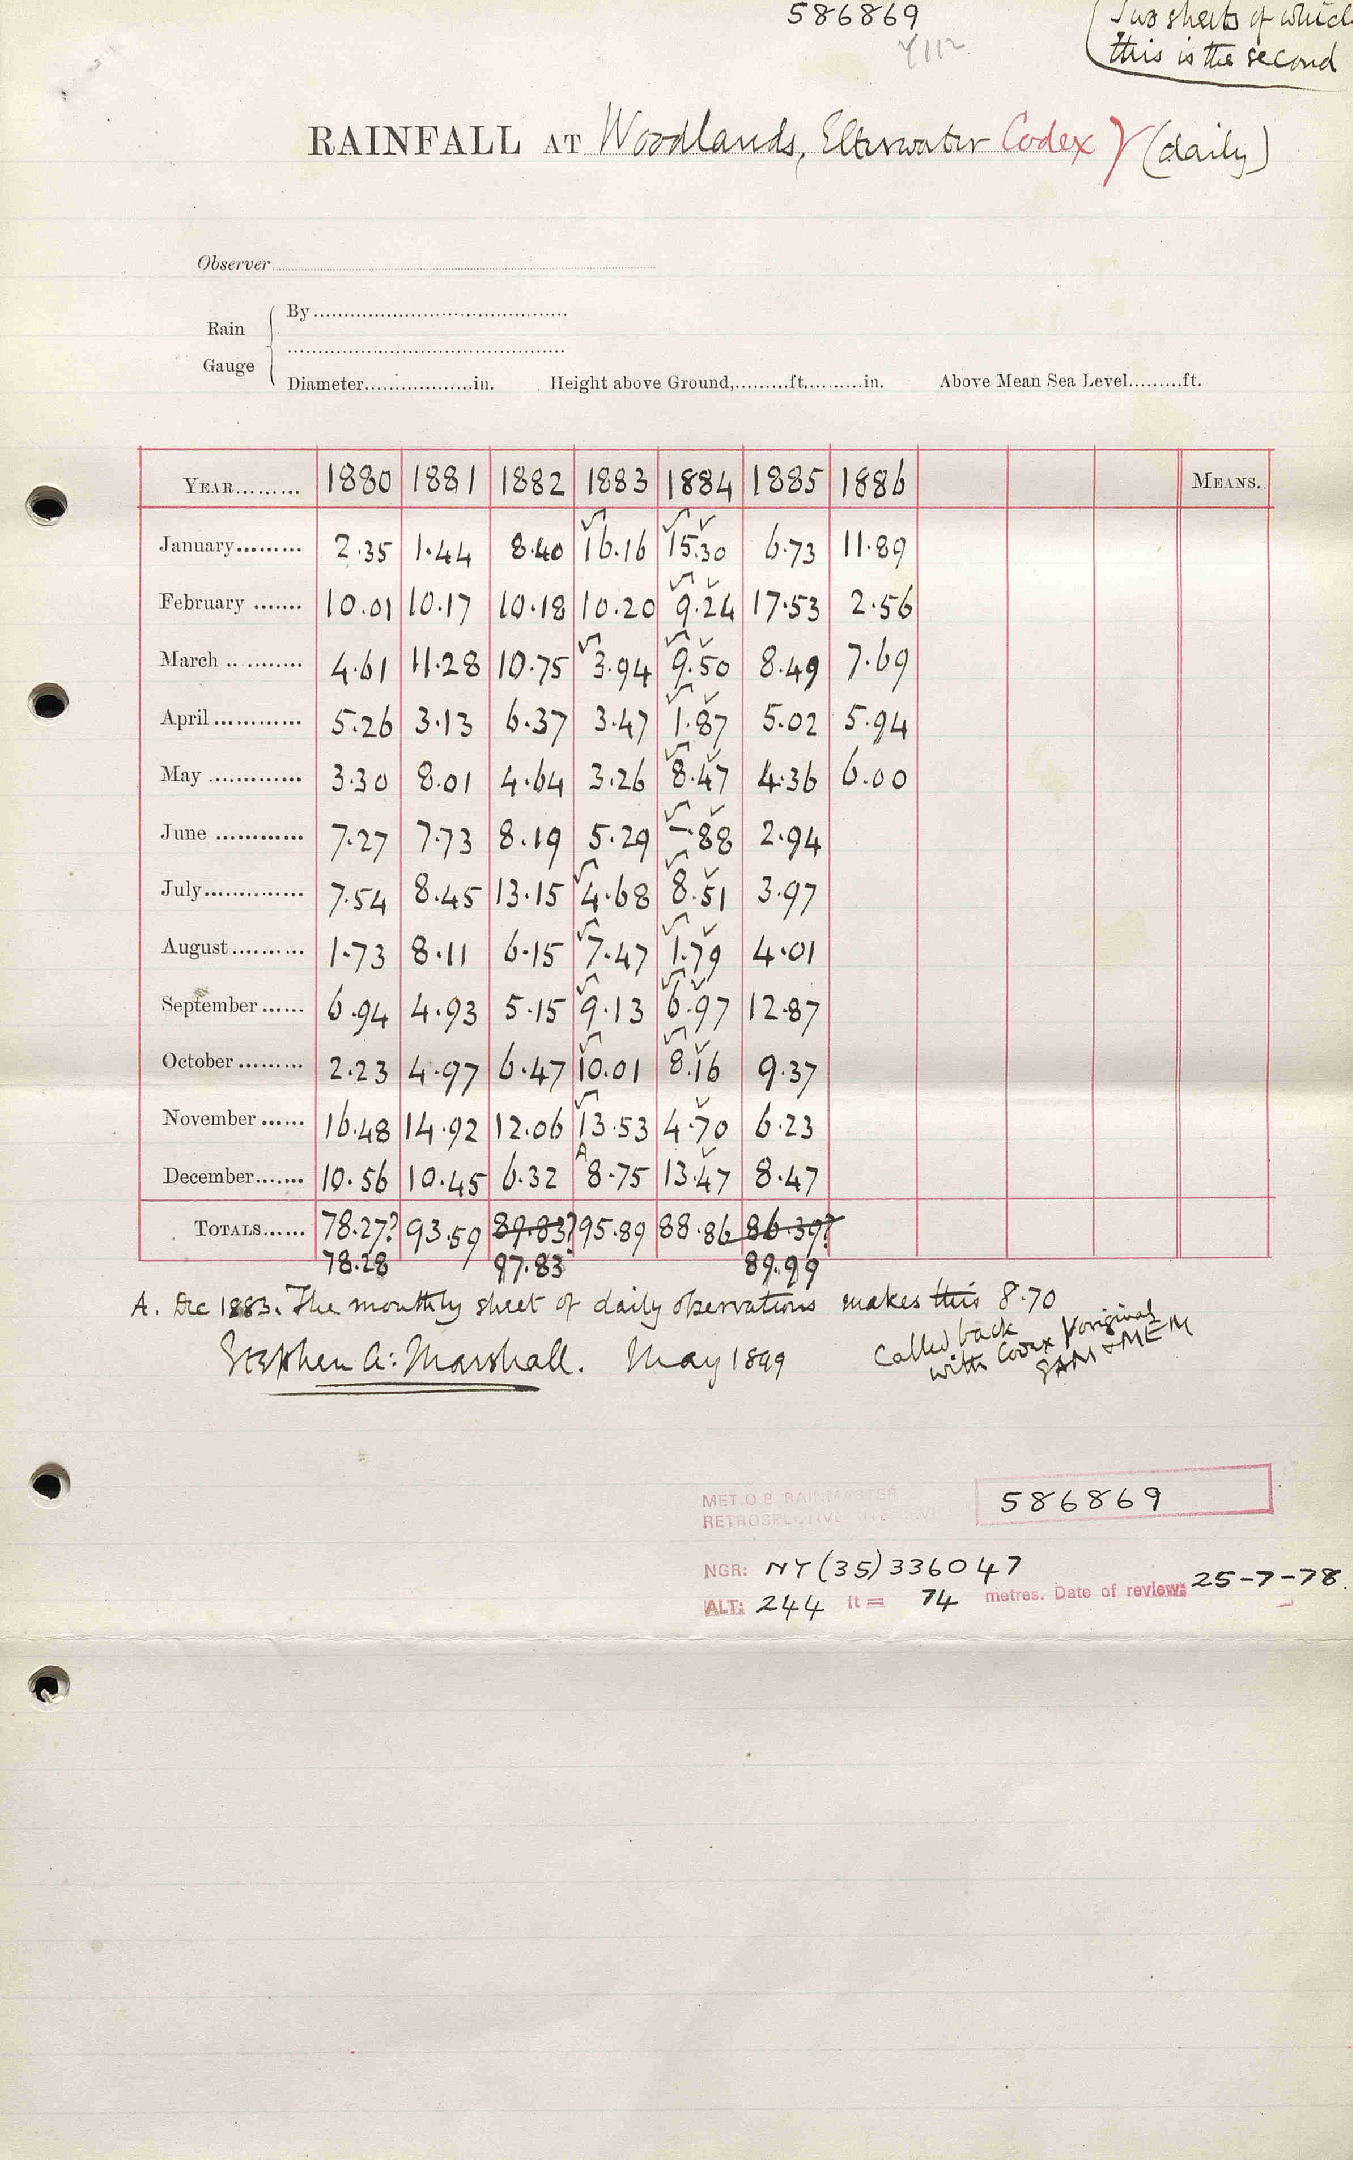 586869
Two sheets of which
this is the second
RAINFALL AT Woodlands, Elterwater Codex γ (daily)
Observer
Rain Gauge
By
Diameter in. Height above Ground, ft. in. Above Mean Sea Level ft.
YEAR 1880 1881 1882 1883 1884 1885 1886 MEANS.
January 2.35 1.44 8.40 16.16 15.30 6.73 11.89
February 10.01 10.17 10.18 10.20 9.24 17.53 2.56
March 4.61 11.28 10.75 3.94 9.50 8.49 7.69
April 5.26 3.13 6.37 3.47 1.87 5.02 5.94
May 3.30 8.01 4.64 3.26 8.47 4.36 6.00
June 7.27 7.73 8.19 5.29 -.88 2.94
July 7.54 8.45 13.15 4.68 8.51 3.97
August 1.73 8.11 6.15 7.47 1.79 4.01
September 6.94 4.93 5.15 9.13 6.97 12.87
October 2.23 4.97 6.47 10.01 8.16 9.37
November 16.48 14.92 12.06 13.53 4.70 6.23
December 10.56 10.45 6.32 A 8.75 13.47 8.47
TOTALS 78.27? 93.59 89.83? 95.89 88.86 86.39?
78.28 97.83 89.99
A. Dec 1883. The monthly sheet of daily observations makes this 8.70
Stephen A: Marshall. May 1899
Called back
with Codex γ original
SAM & MEM
MET.O.8 RAINMASTER
RETROSPECTIVE
586869
NGR: NY (35) 336047
ALT: 244 ft = 74 metres. Date of review: 25-7-78.